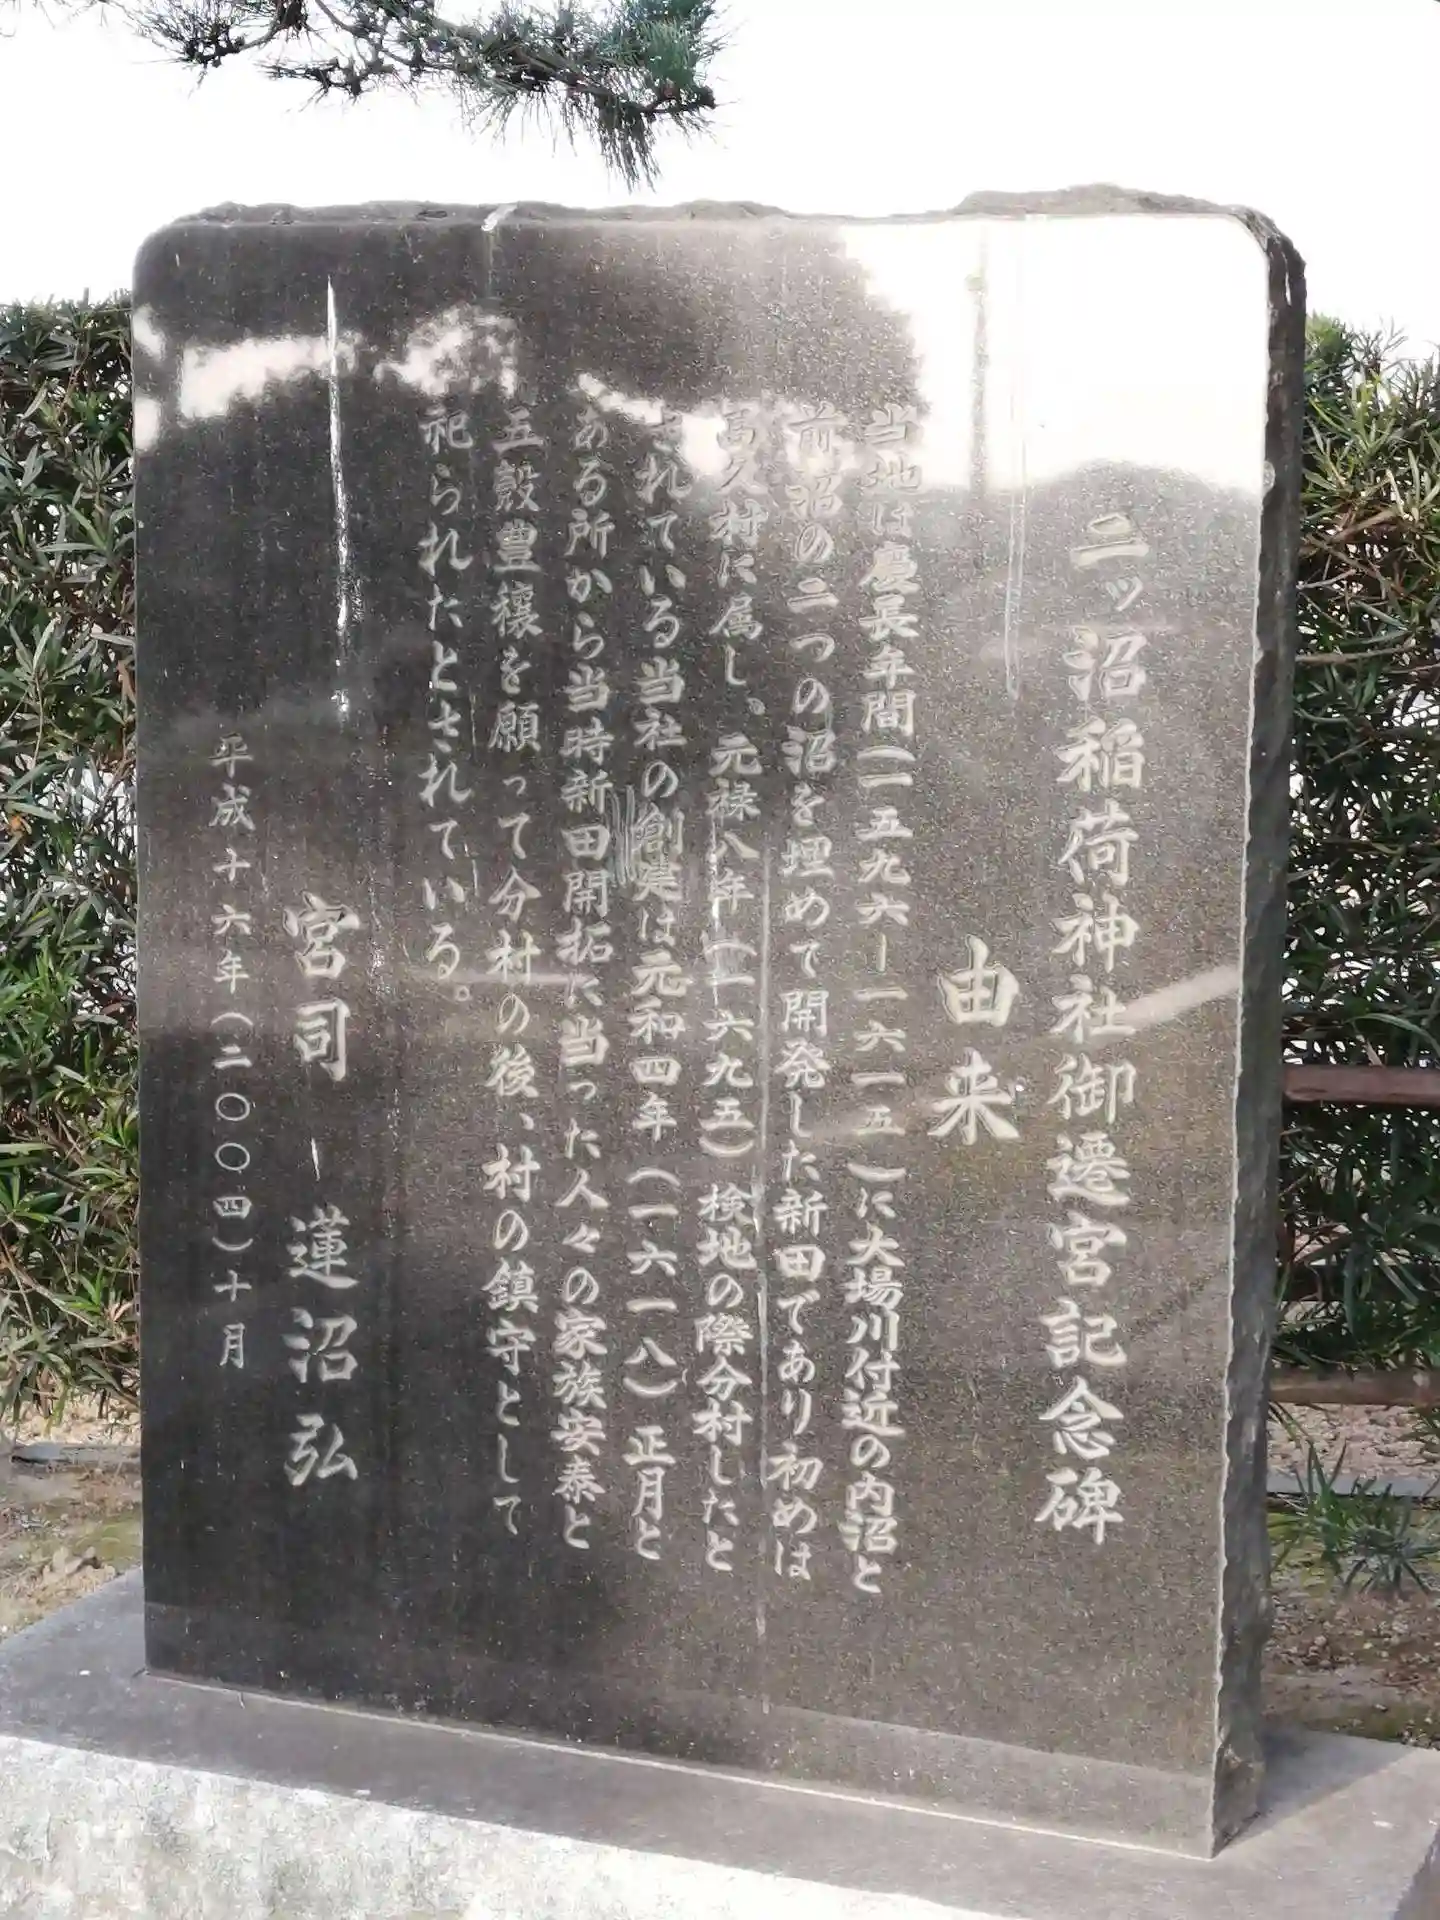 二ッ沼稲荷神社御遷宮記念碑
由来
当地は慶長年間(一五九六ー一六一五)に大場川付近の内沼と
前沼の二つの沼を埋めて開発した新田であり初めは
髙久村に属し、元禄八年(一六九五)検地の際分村したと
されている当社の創建は元和四年(一六一八)正月と
ある所から当時新田開拓に当った人々の家族安泰と
五穀豊穣を願って分村の後、村の鎮守として
祀られたとされている。
宮司 蓮沼弘
平成十六年(二〇〇四)十月